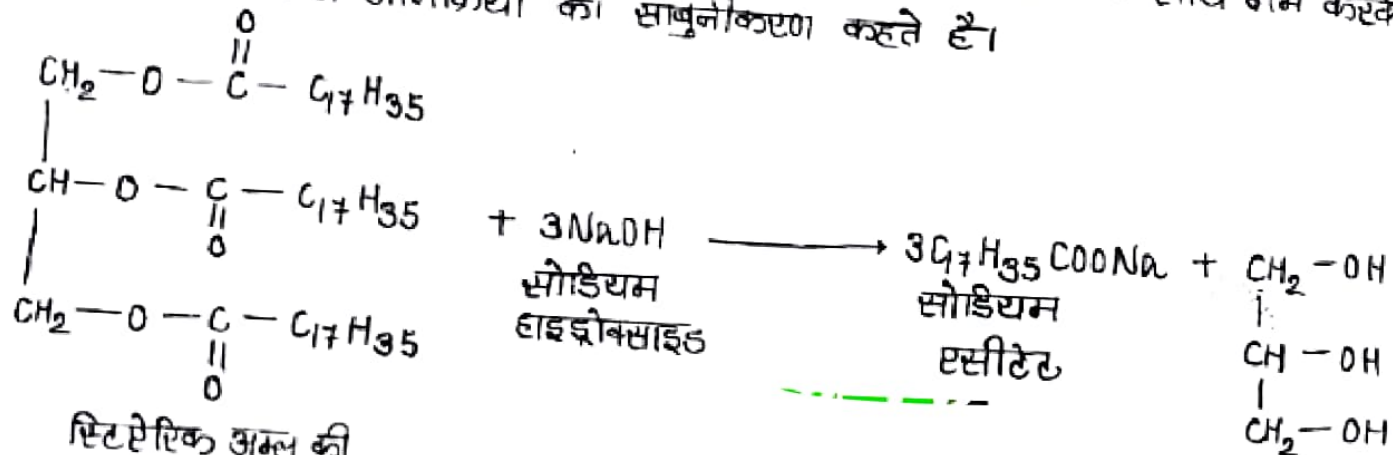 का साबुनीकरण कहते है।
O
||
CH₂—O—C—C₁₇H₃₅
|
CH—O—C—C₁₇H₃₅ + 3NaOH ⟶ 3C₁₇H₃₅COONa + CH₂-OH
|| सोडियम सोडियम |
O हाइड्रोक्साइड एसीटेट CH-OH
| |
CH₂—O—C—C₁₇H₃₅ CH₂-OH
||
O
स्टिऐरिक अम्ल की